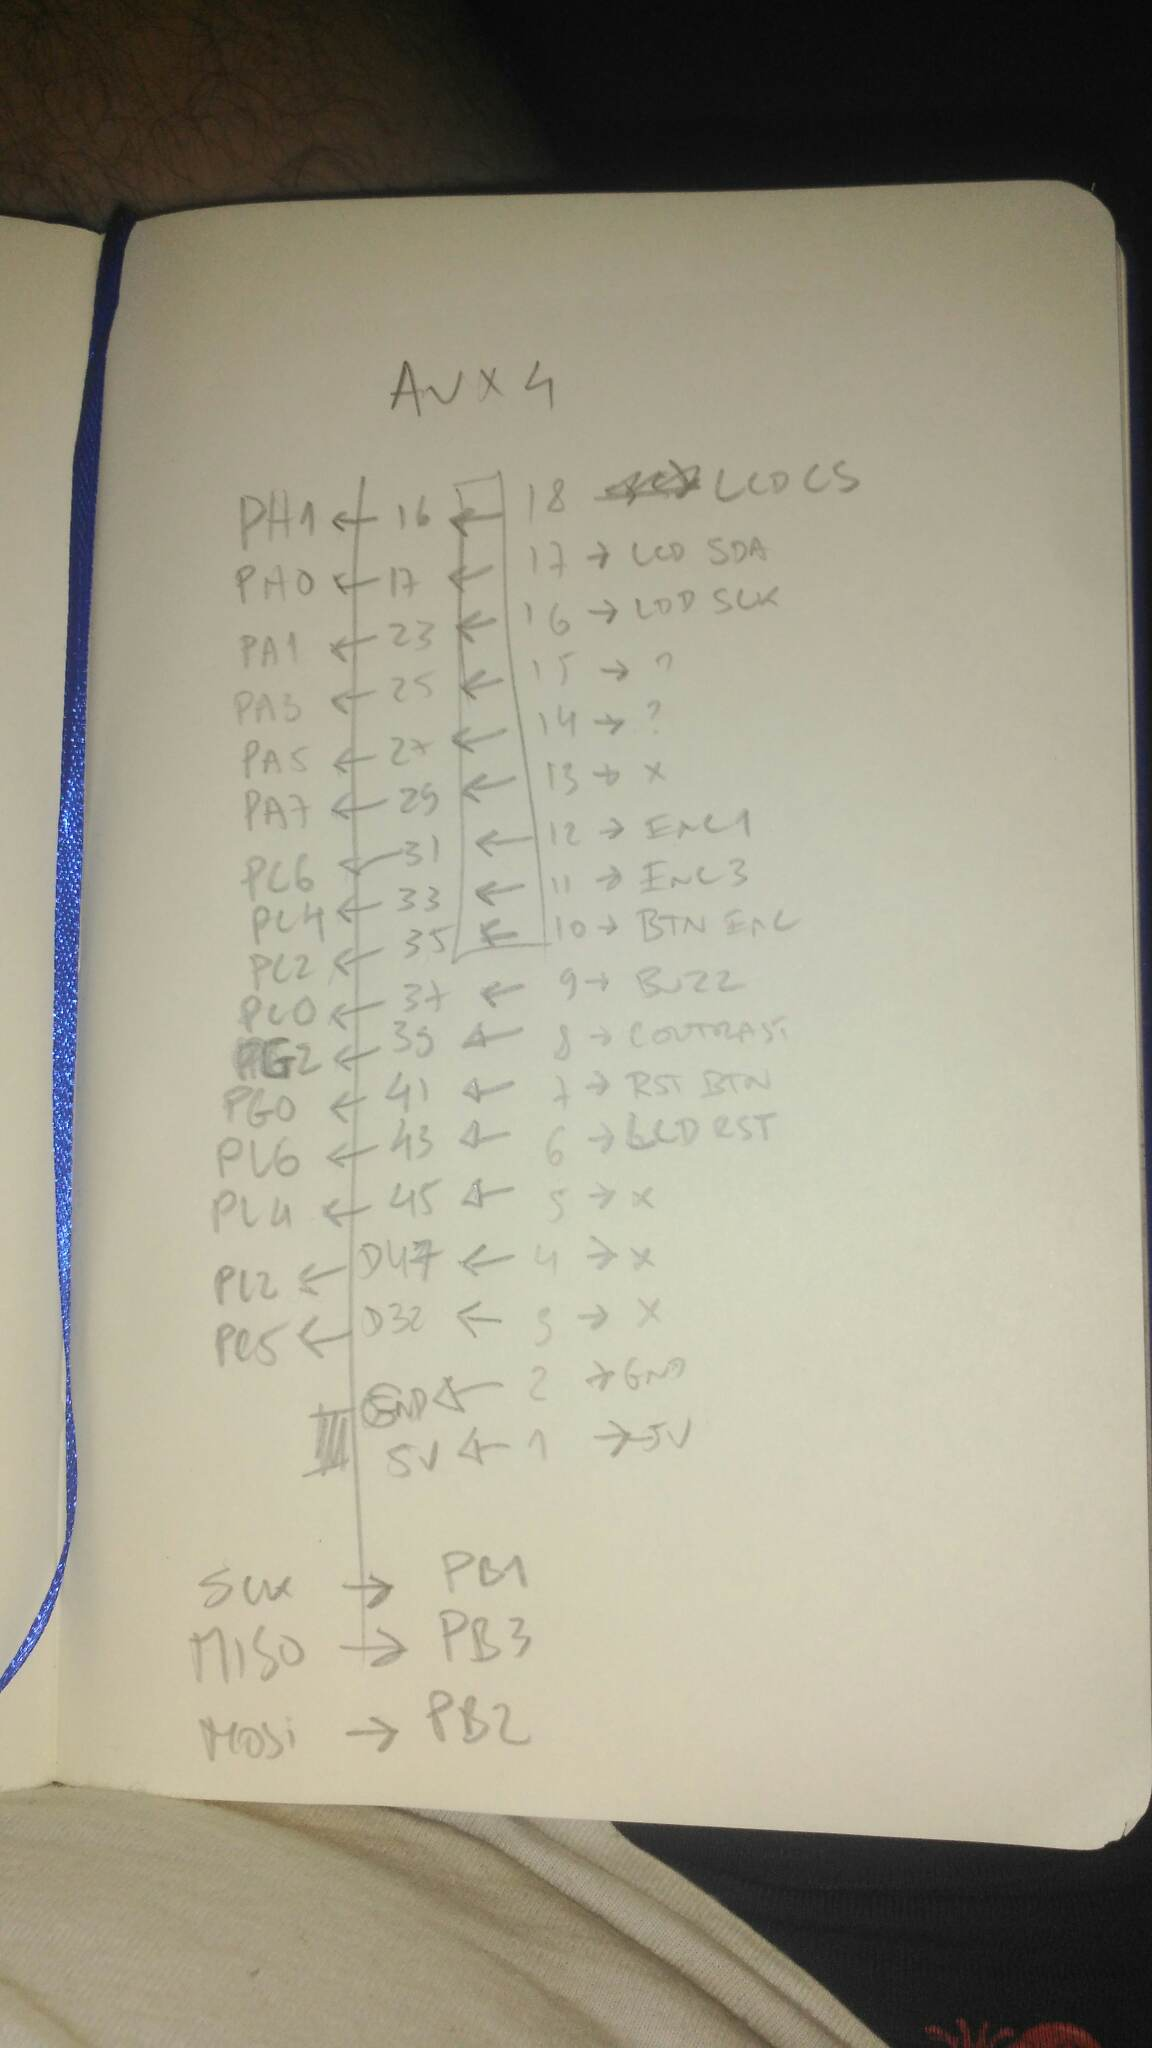 AUX4
PH1 ← 16 ← 18 LCD CS
PH0 ← 17 ← 17 → LCD SDA
PA1 ← 23 ← 16 → LCD SCK
PA3 ← 25 ← 15 → ?
PA5 ← 27 ← 14 → ?
PA7 ← 29 ← 13 → x
PC6 ← 31 ← 12 → ENC1
PC4 ← 33 ← 11 → ENC3
PC2 ← 35 ← 10 → BTN ENC
PC0 ← 37 ← 9 → BUZZ
PG2 ← 39 ← 8 → CONTRAST
PG0 ← 41 ← 7 → RST BTN
PL6 ← 43 ← 6 → LCD RST
PL4 ← 45 ← 5 → x
PL2 ← D47 ← 4 → x
PC5 ← D32 ← 3 → x
GND ← 2 → GND
5V ← 1 → 5V
SCK → PB1
MISO → PB3
MOSi → PB2